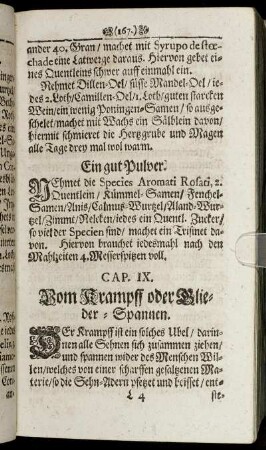 (167.)
ander 40. Gran/ machet mit Syrupo de stœ-
chade eine Latwerge daraus. Hiervon gebet ei-
nes Quentleins schwer auff einmahl ein.
Nehmet Dillen-Oel/ süsse Mandel-Oel/ ie-
des 2. Loth/ Camillen-Oel/ 1. Loth/ guten starcken
Wein/ ein wenig Poeingen-Samen/ so ausge-
schelet/ machet mit Wachs ein Sälblein davon/
hiermit schmieret die Hertzgrube und Magen
alle Tage drey mal wol warm.
Ein gut Pulver.
NEhmet die Species Aromati Rosati, 2.
Quentlein/ Kümmel-Samen/ Fenchel-
Samen/ Anis/ Calmus-Wurtzel/ Aland-Wur-
tzel/ Zimmt/ Nelcken/ iedes ein Quentl. Zucker/
so viel der Specien sind/ machet ein Trisinet da-
von. Hiervon brauchet iedesmahl nach den
Mahlzeiten 4. Messerspitzen voll.
CAP. IX.
Vom Krampff oder Glie-
der-Spannen.
DEr Krampff ist ein solches Ubel/ darin-
nen alle Sehnen sich zusammen ziehen/
und spannen wider des Menschen Wil-
len/ welches von einer scharffen gesaltzenen Ma-
terie/ so die Sehn-Adern pfetzet und beisset/ ent-
L 4 ste-